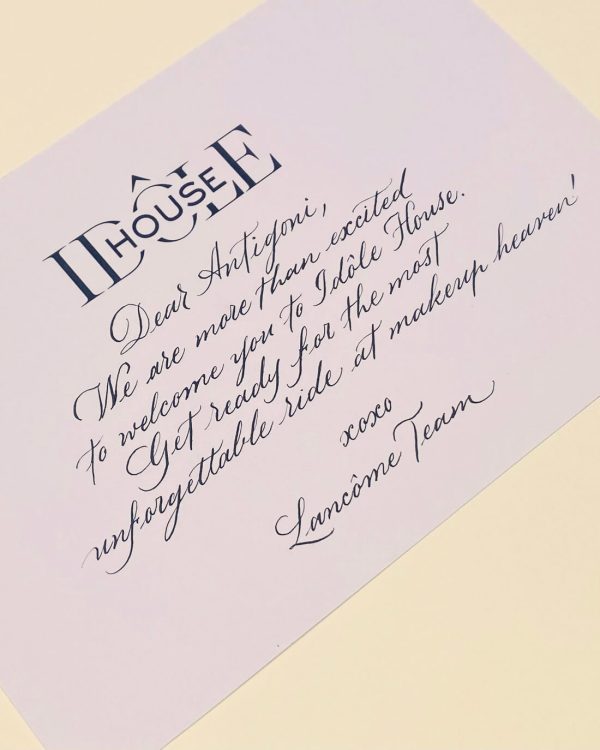 IDÔLE
HOUSE
Dear Antigoni,
We are more than excited
to welcome you to Idôle House.
Get ready for the most
unforgettable ride at makeup heaven!
xoxo
Lancôme Team